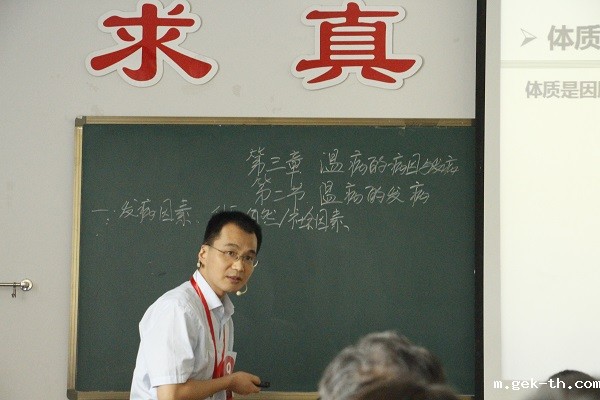 求真
体质
体质是因
第三章 温病的病因与发病
第二节 温病的发病
一：发病因素、体 自然/社会因素、
m.gek-th.com